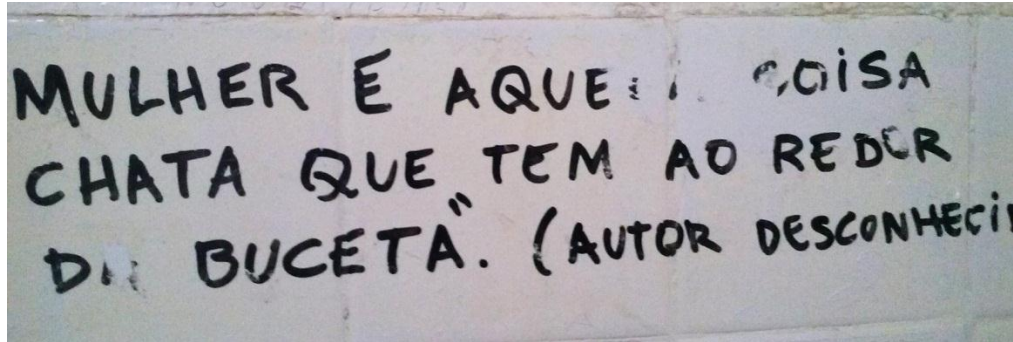 MULHER E AQUELA COISA
CHATA QUE TEM AO REDOR
DA BUCETA". (AUTOR DESCONHECI